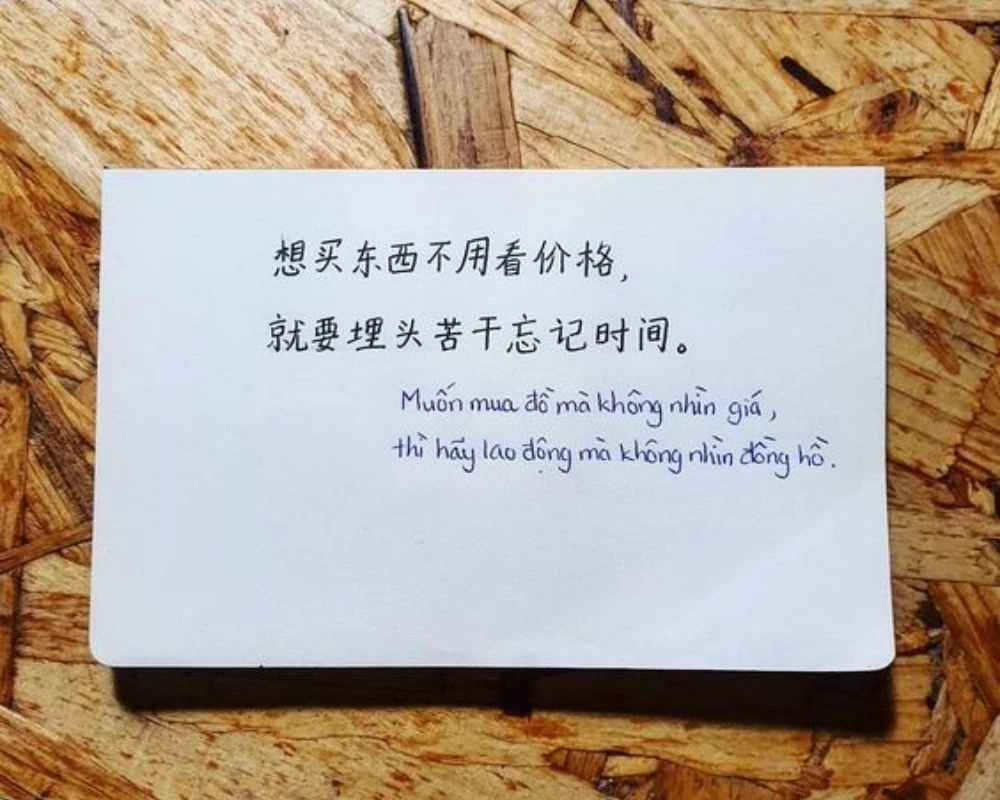 想买东西不用看价格,
就要埋头苦干忘记时间。
Muốn mua đồ mà không nhìn giá,
thì hãy lao động mà không nhìn đồng hồ.